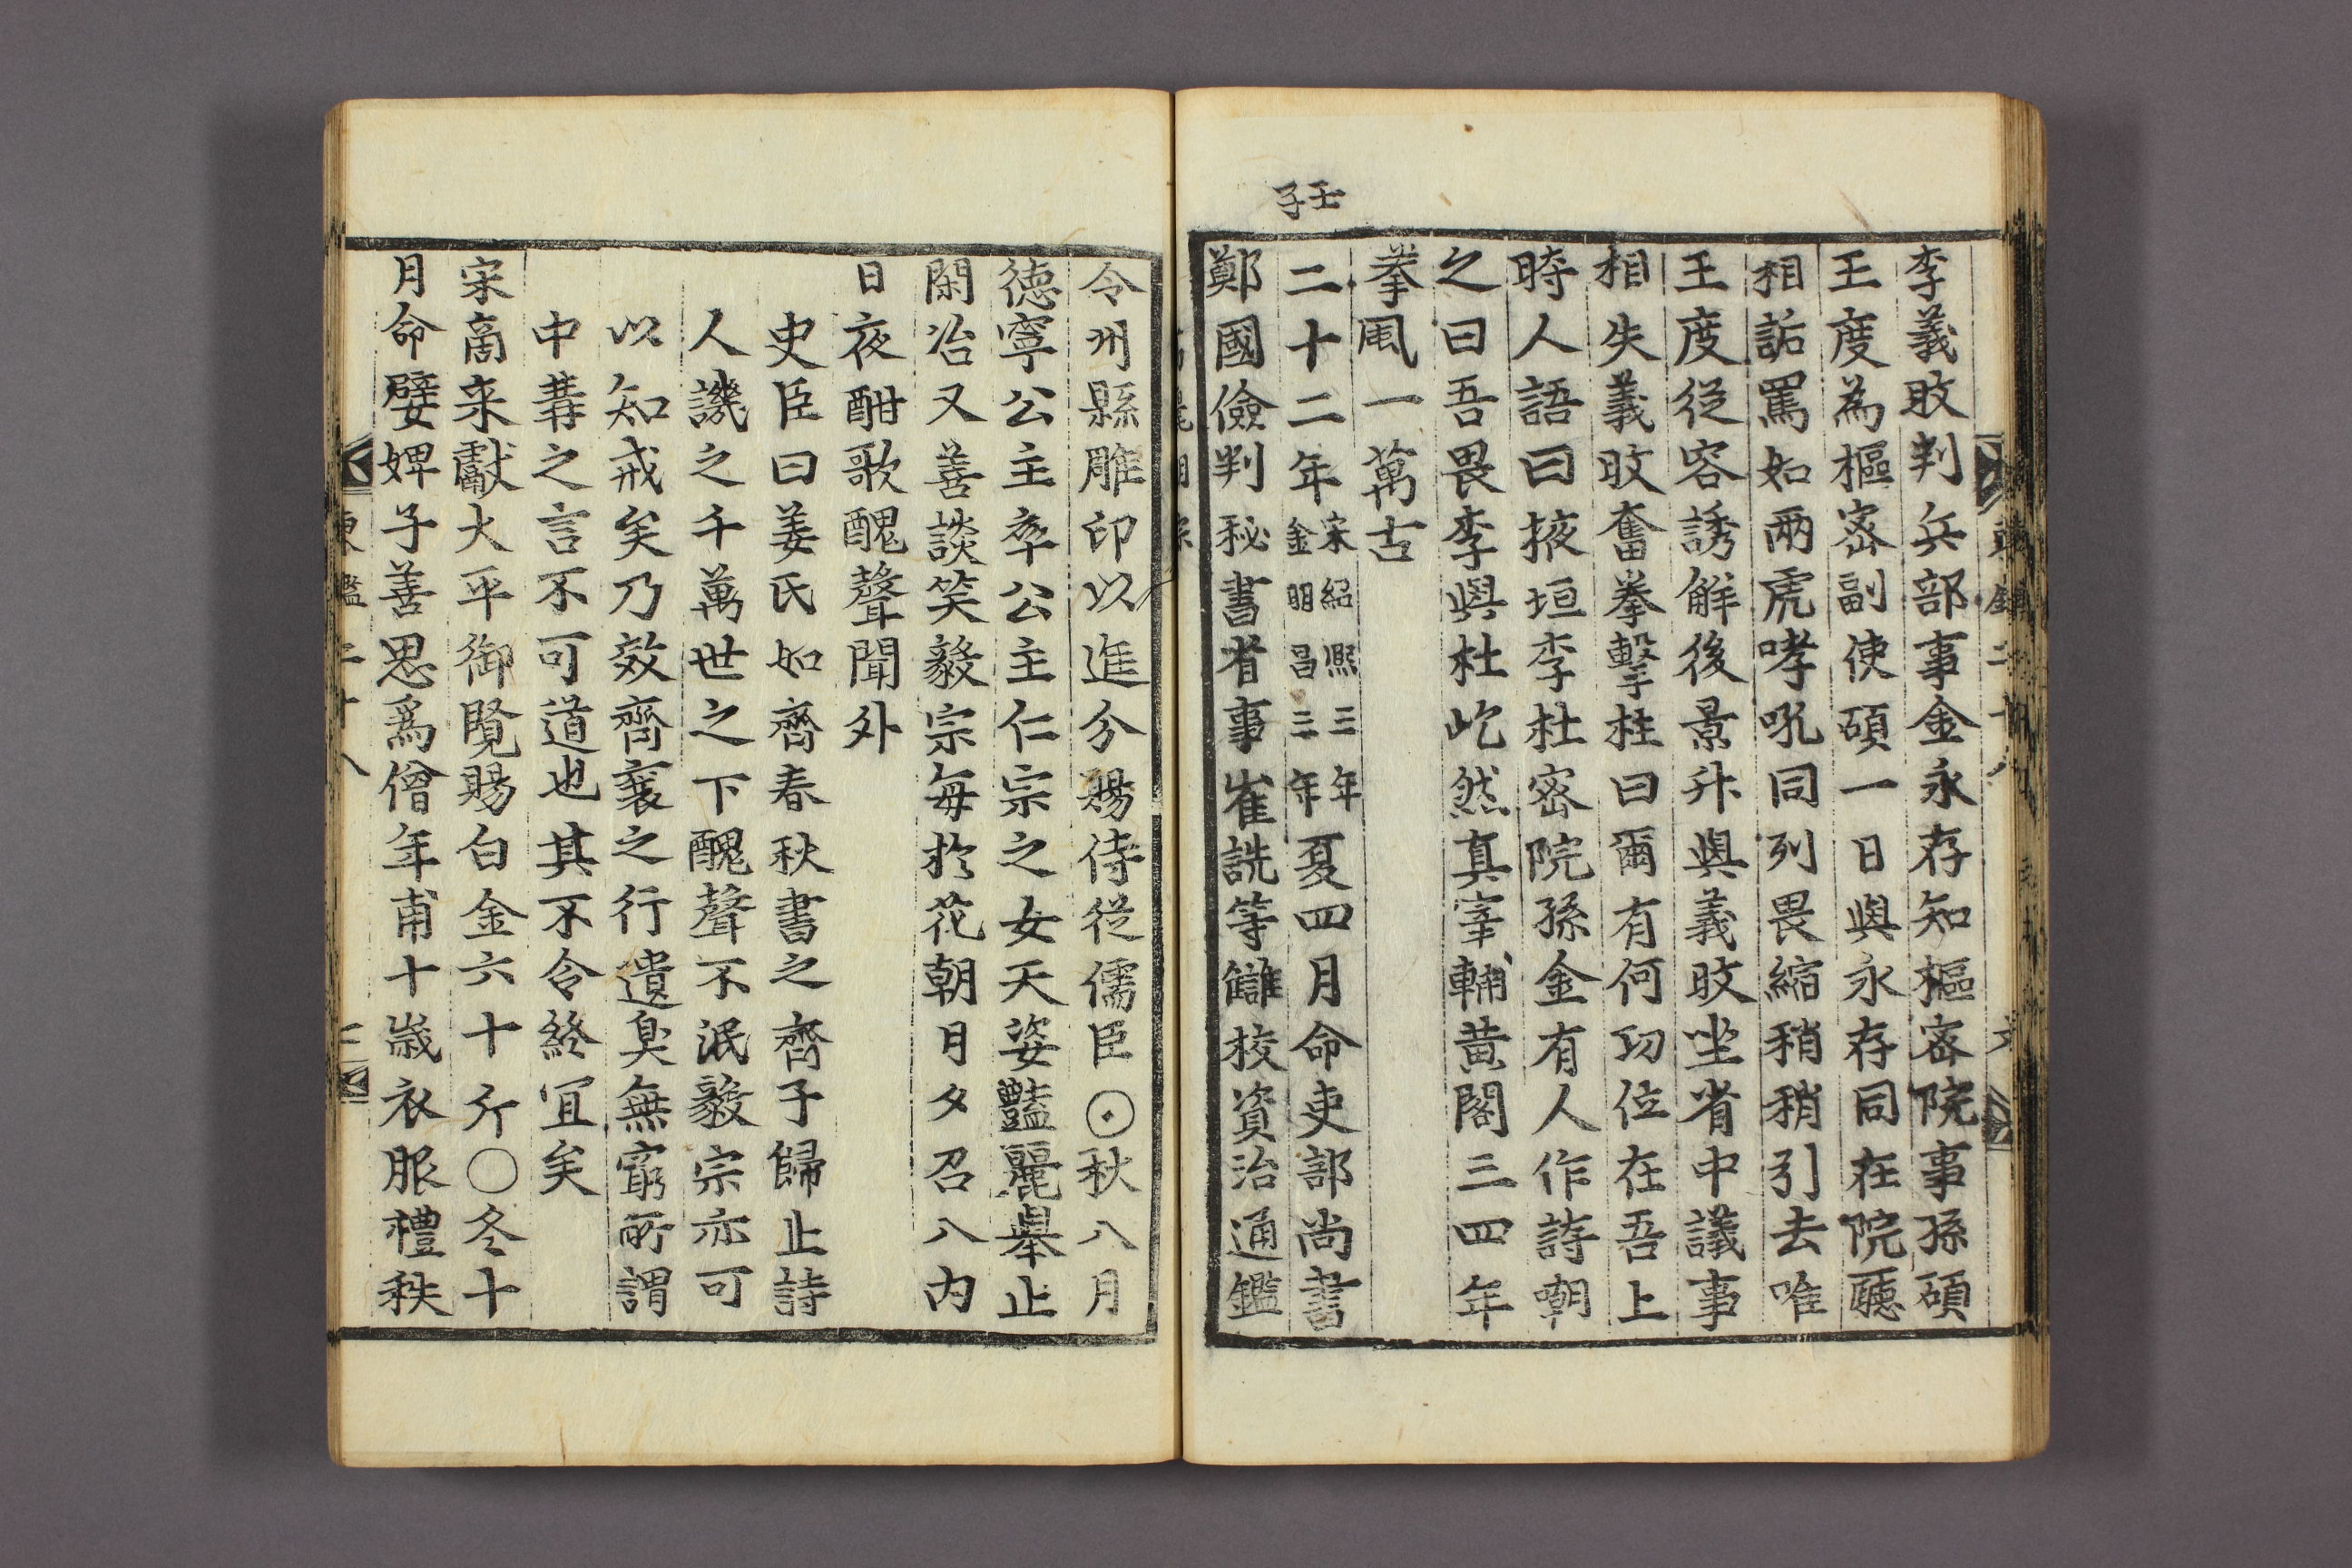 李義旼判兵部事金永存知樞密院事孫碩
王度為樞密副使碩一日與永存同在院廳
相詬罵如兩虎哮吼同列畏縮稍稍引去唯
王度從容誘解後景升與義旼坐省中議事
相失義旼奮拳擊柱曰爾有何功位在吾上
時人語曰掖垣李杜密院孫金有人作詩嘲
之曰吾畏李與杜屹然真宰輔黃閣三四年
拳風一萬古
壬子
二十二年宋紹熙三年金明昌三年夏四月命吏部尚書
鄭國儉判秘書省事崔詵等讎校資治通鑑
令州縣雕印以進分賜侍從儒臣⊙秋八月
德寧公主卒公主仁宗之女天姿豔麗舉止
閑冶又善談笑毅宗每於花朝月夕召入内
日夜酣歌醜聲聞外
史臣曰姜氏如齊春秋書之齊子歸止詩
人譏之千萬世之下醜聲不泯毅宗亦可
以知戒矣乃效齊襄之行遺臭無窮所謂
中冓之言不可道也其不令終宜矣
宋商来獻大平御覽賜白金六十斤〇冬十
月命嬖婢子善思爲僧年甫十歲衣服禮秩